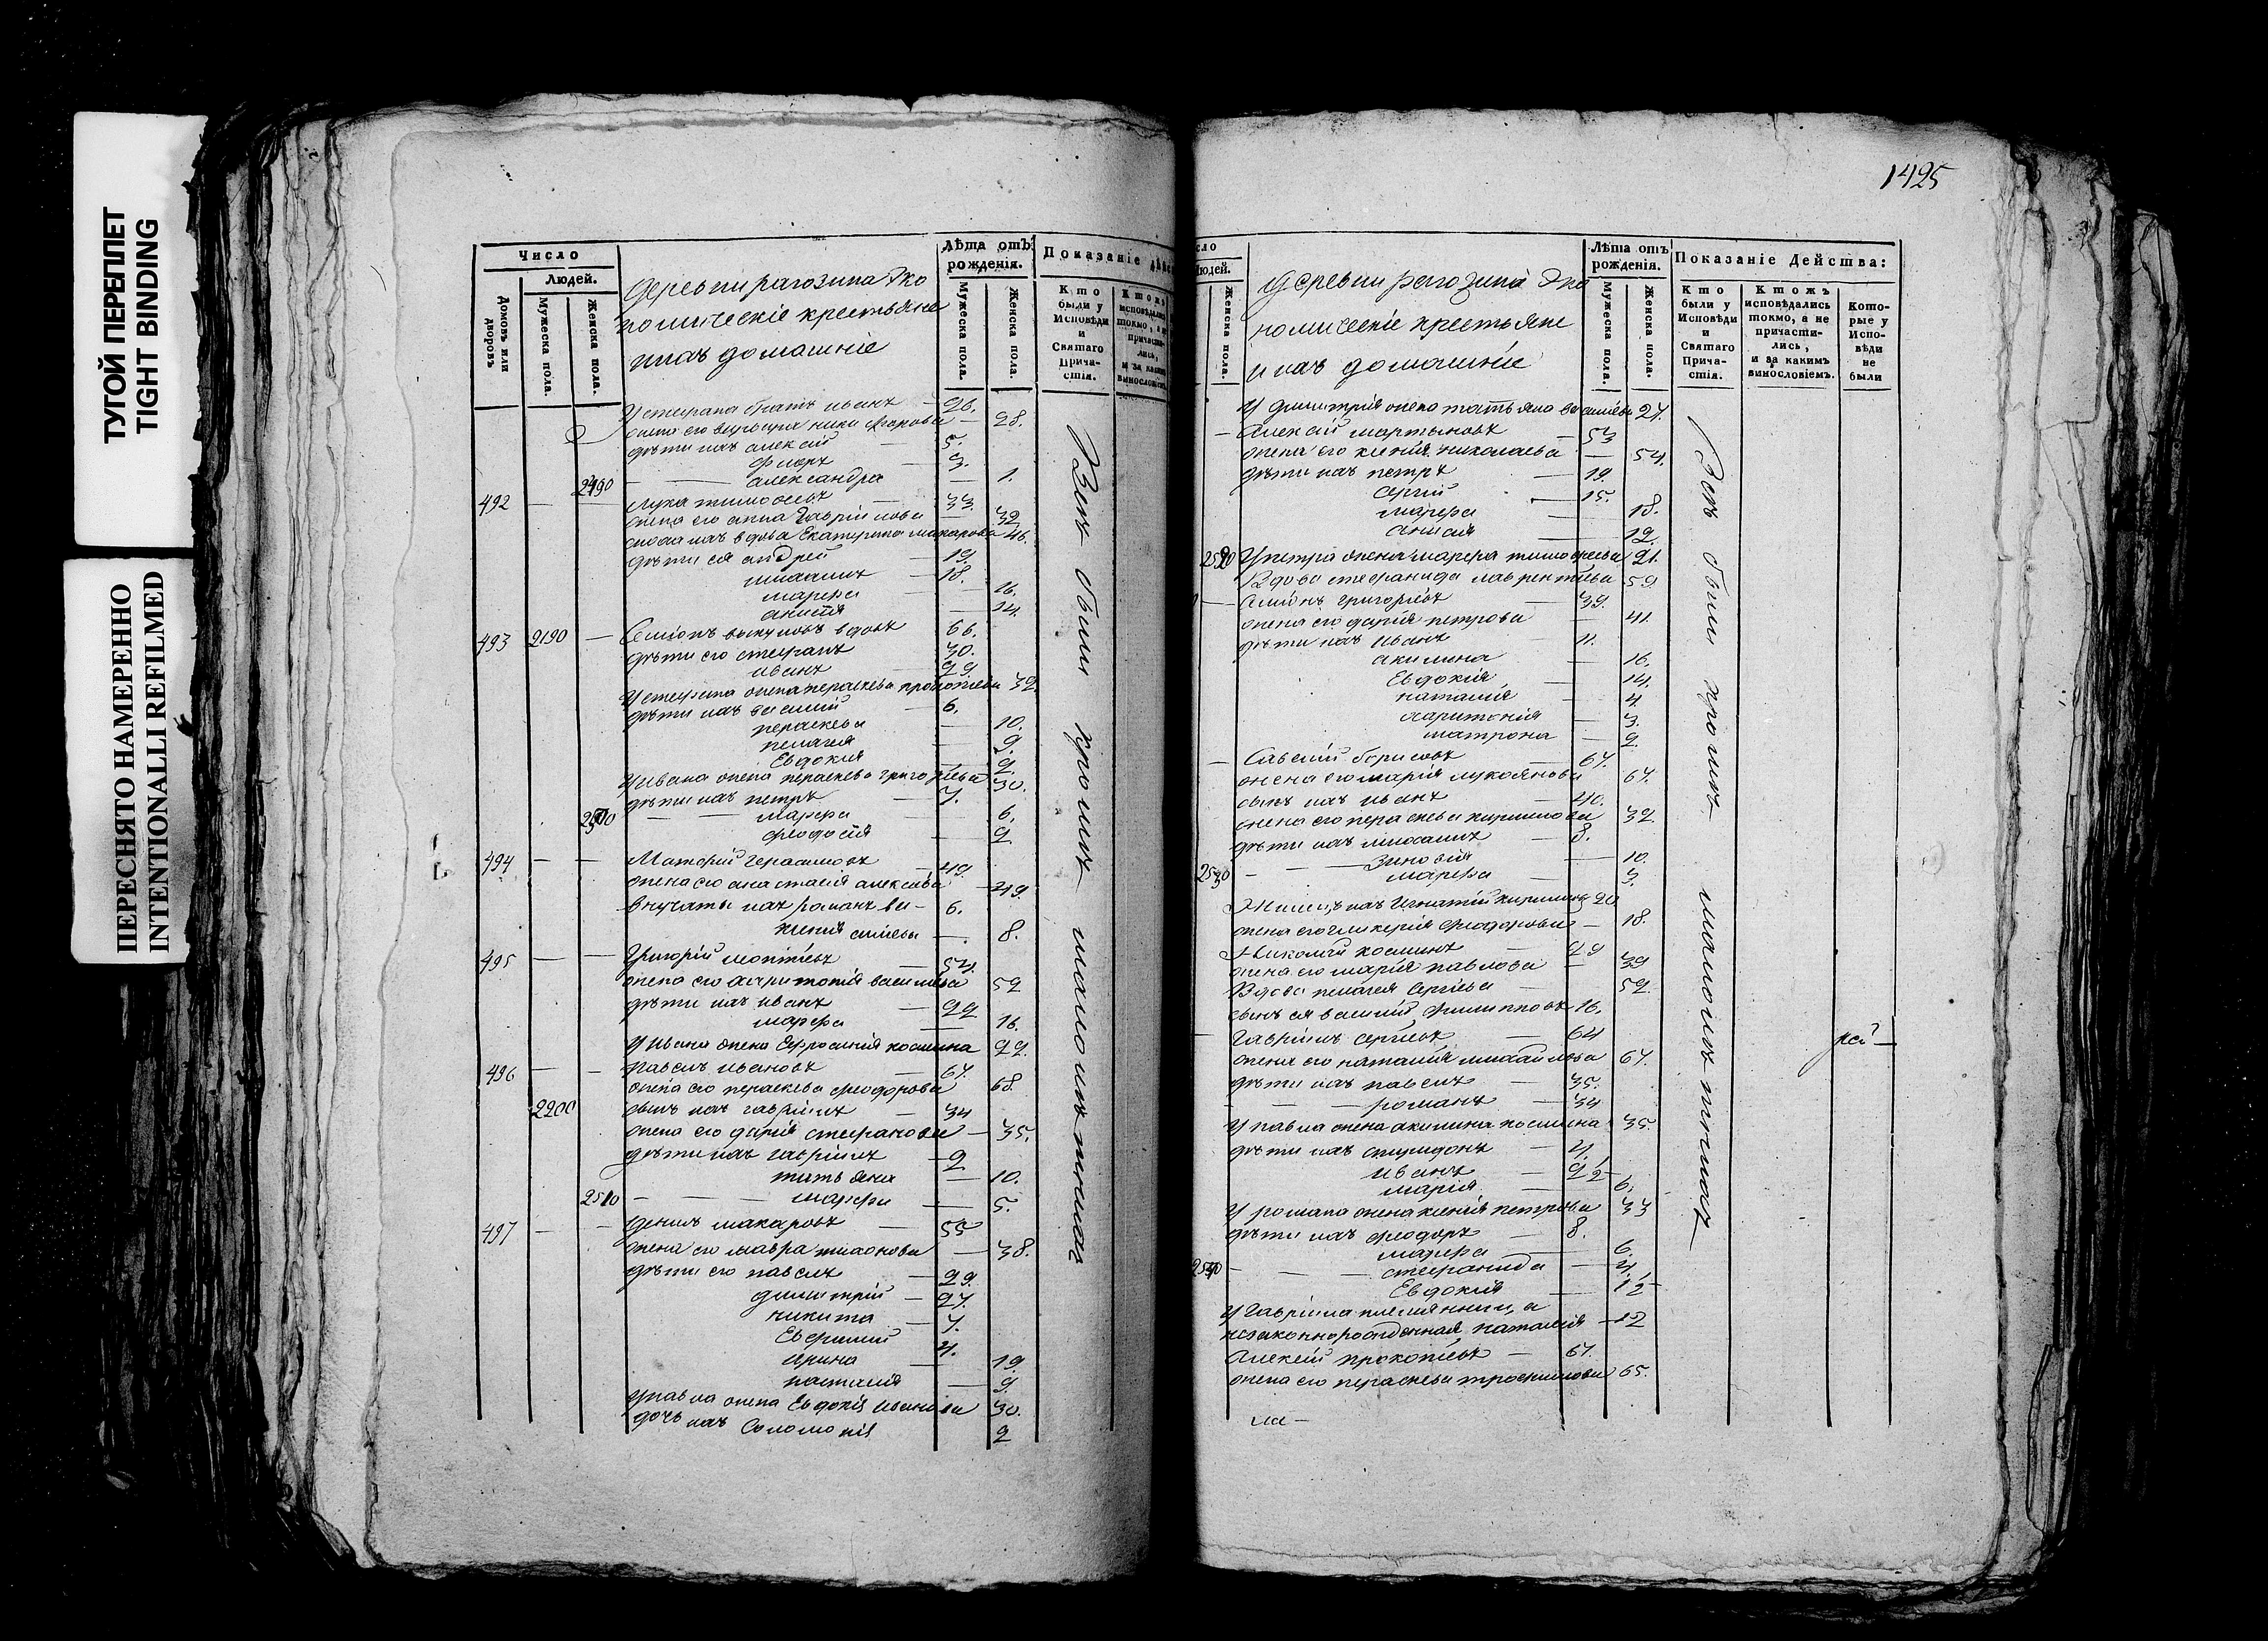 ТУГОЙ ПЕРЕПЛЕТ
TIGHT BINDING
ПЕРЕСНЯТО НАМЕРЕННО
INTENTIONALLI REFILMED
Число
Людей.
Домовъ или дворовъ
Мужеска пола.
Женска пола.
деревни рагозина Эко
номическіе крестьяне
ихъ домашніе
Лѣта отъ рожденія.
Мужеска пола.
Женска пола.
Показаніе
Кто были у Исповѣди и Святаго Прича-стія.
У стефана братъ иванъ — 26.
жена его 28.
дѣти ихъ алексій 5.
3.
2490 — александра — 1.
492 — лука тимофеевъ — 33.
жена его анна Гаврилова 32
вдова Екатерина макарова 46.
дѣти ея андрей — 19.
михаилъ — 18.
марфа — 16.
анисія — 14.
493 2190 — Семіонъ вдовъ 66.
дѣти его стефанъ 30.
иванъ 29.
У стефана жена параскева прокопіева 32
дѣти ихъ василій — 6.
параскева — 10.
пелагея — 9.
Евдокия — 2.
У ивана жена параскева григорьева 30.
дѣти ихъ петръ — 7.
2500 — марфа 6.
феодосія — 2
494 — — Матфій герасимовъ — 49.
жена его анастасія алексѣева — 49.
внучаты ихъ романъ ва- 6.
ксенія сильевы — 8.
495 — — Григорій леонтіевъ — 54.
жена его харитонія васильева 52
дѣти ихъ иванъ — 22
марфа — 16.
У ивана жена Ефросинія космина 22.
496 — — павелъ ивановъ — 67.
жена его параскева феодорова 68.
2200 сынъ ихъ гавріилъ — 34
жена его дарія стефанова — 35.
дѣти ихъ гавріилъ — 2
татьяна — 10.
2510 — — — марфа — 5.
497 — — денилъ макаровъ — 55
жена его мавра тихонова — 38.
дѣти его павелъ — 29.
димитрій — 27.
никита — 7.
Евфимий 4.
ирина — 19.
наталія — 9.
У павла жена Евдокія иванова 30.
дочь ихъ Соломонія 2
Всѣ были
1425
Людей.
Женска пола.
деревни рагозина Эко
номическіе крестьяне
и ихъ домашніе
Лѣта отъ рожденія.
Мужеска пола.
Женска пола.
Показаніе Дѣйства:
Кто были у Исповѣди и Святаго Прича-стія.
Ктожъ исповѣдались токмо, а не причасти-лись, и за какимъ винословіемъ.
Кото-рые у Испо-вѣди не были
У димитрія жена татьяна васильева 27.
Алексій мартыновъ — 53
жена его ксенія николаева — 54.
дѣти ихъ петръ — 19.
Сергій — 15.
марфа — 18.
анисія — 12.
2520 У петра жена марфа тимофеева 21.
Вдова стефанида лаврентьева 59
Симіонъ григорьевъ — 39.
жена его дарія петрова — 41.
дѣти ихъ иванъ — 11.
акилина — 16.
Евдокія — 14.
наталія — 4.
харитонія — 3.
матрона — 2.
Савелій борисовъ — 67.
жена его марія лукоянова 67.
сынъ ихъ иванъ — 40.
жена его параскева кирилова 32
дѣти ихъ михаилъ — 8.
Зиновія — 10.
2530 — марфа — 3.
ихъ Игнатій 20
жена его гликерія феодорова — 18.
Николай косминъ — 29
жена его марія павлова — 39
Вдова пелагея Сергіева — 52.
сынъ ея василий филипповъ 16.
Гавріилъ сергѣевъ — 64
жена его наталія михайлова 67.
дѣти ихъ павелъ — 35.
романъ — 34
У павла жена акилина космина 35.
дѣти ихъ спиридонъ — 4.
иванъ — 2½
марія — 6.
У романа жена ксенія петрова 33
дѣти ихъ феодоръ — 8.
марфа — 6.
2540 — — — стефанида — 4.
Евдокия — 1½
У Гавріила племянница
незаконнорожденная наталія — 12
Алексій прокопіевъ — 67.
жена его параскева трофимова 65.
Всѣ были